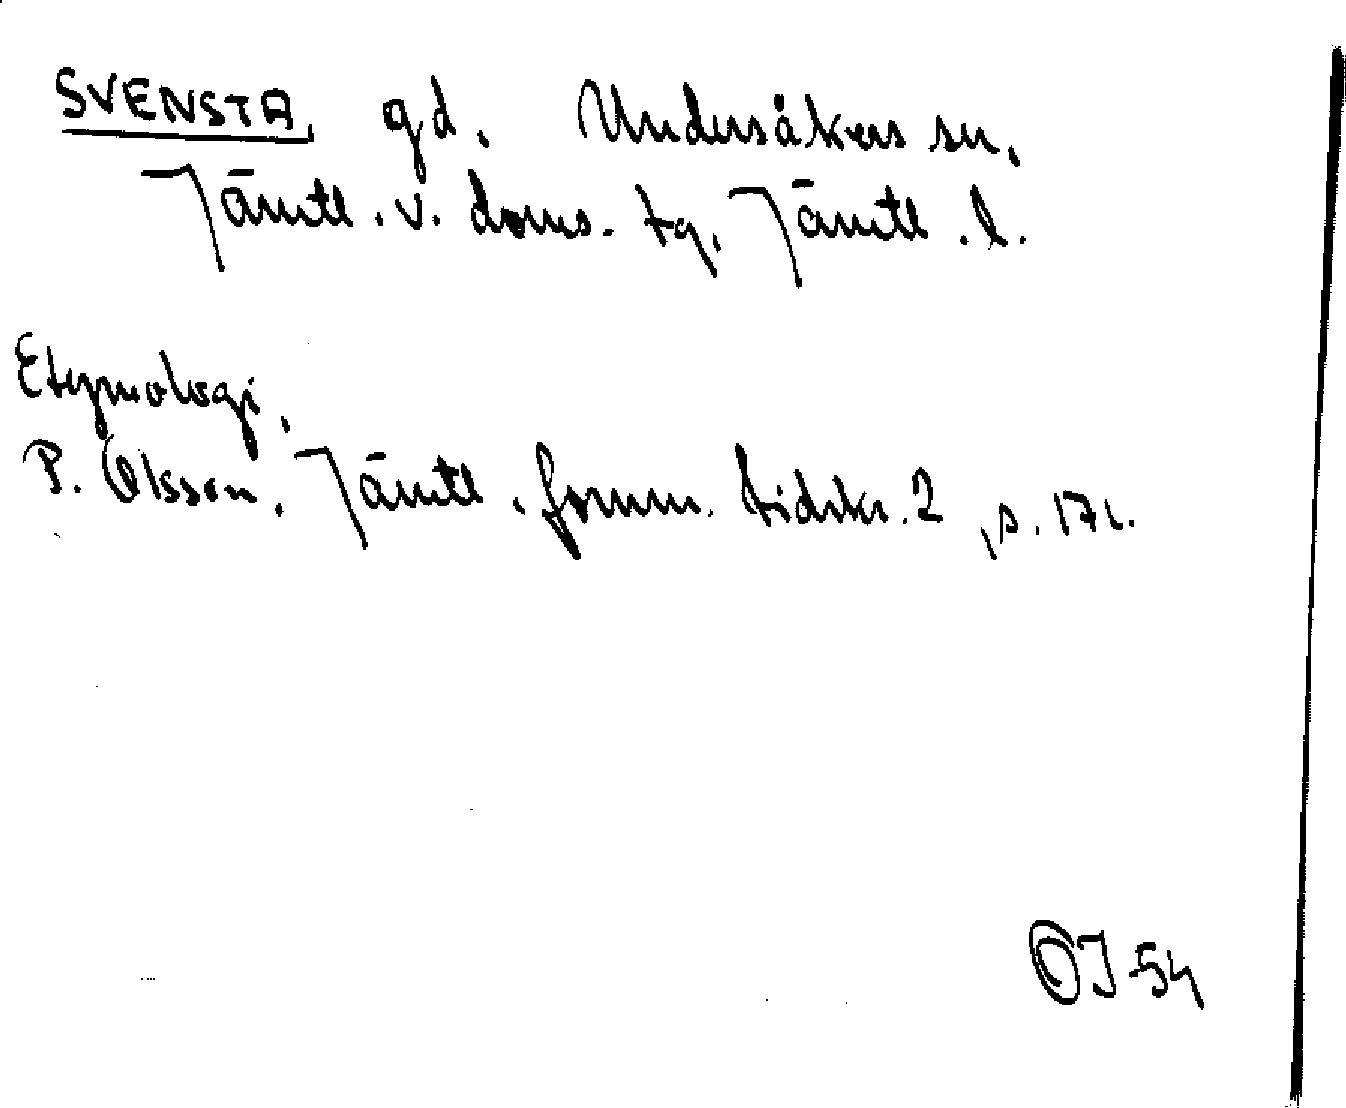 SVENSTA, gd. Undersåkers sn.
Jämtl. v. doms. tg. Jämtl. l.
Etymologi.
P. Olsson, Jämtl. fornm. tidskr. 2, s. 171.
OJ 54